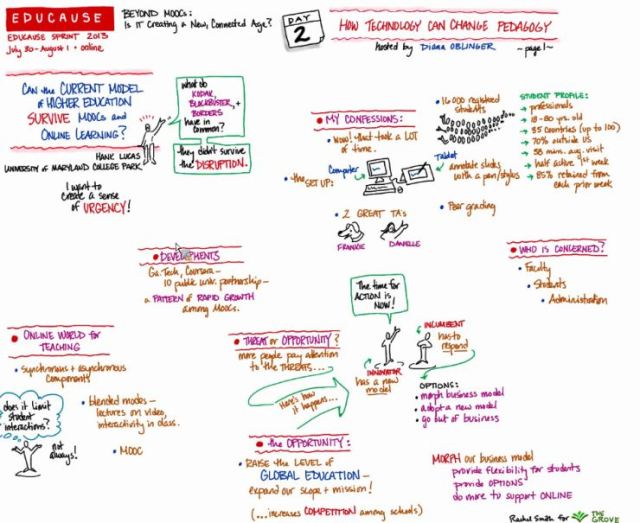 EDUCAUSE
EDUCAUSE SPRINT 2013
July 30-August 1 • online
BEYOND MOOCs:
Is IT Creating a New, Connected Age?
DAY 2
HOW TECHNOLOGY CAN CHANGE PEDAGOGY
hosted by DIANA OBLINGER
~page 1~
CAN the CURRENT MODEL
of HIGHER EDUCATION
SURVIVE MOOCs and
ONLINE LEARNING?
HANK LUCAS
UNIVERSITY OF MARYLAND COLLEGE PARK
I want to
create a sense
of URGENCY!
what do
KODAK,
BLOCKBUSTER, +
BORDERS
have in
common?
they didn't survive
the DISRUPTION.
• MY CONFESSIONS:
• wow! that took a LOT
of time.
• the SET UP:
Computer
Tablet
annotate slides
with a pen/stylus
• 2 GREAT TA's
FRANKIE
DANIELLE
• 16000 registered
students
• Peer grading
STUDENT PROFILE:
→ professionals
→ 18-80 yrs. old
→ 35 countries (up to 100)
→ 70% outside US
→ 58 min. avg. visit
→ half active 1st week
→ 85% retained from
each prior week
• WHO IS CONCERNED?
• Faculty
• Students
• Administration
• DEVELOPMENTS
Ga. Tech, Coursera -
10 public univ. partnership -
a PATTERN of RAPID GROWTH
among MOOCs.
• ONLINE WORLD for
TEACHING
• synchronous + asynchronous
components
• blended modes -
lectures on video,
interactivity in class.
• MOOC
does it limit
student
interactions?
not
always!
• THREAT or OPPORTUNITY?
more people pay attention
to the THREATS...
Here's how
it happens...
The time for
ACTION is
NOW!
INNOVATOR
has a new
model
INCUMBENT
has to
respond
OPTIONS:
• morph business model
• adopt a new model
• go out of business
• the OPPORTUNITY:
• RAISE the LEVEL of
GLOBAL EDUCATION -
expand our scope + mission!
(...increases COMPETITION among schools)
MORPH our business model
provide flexibility for students
provide OPTIONS
do more to support ONLINE
Rachel Smith for
THE GROVE